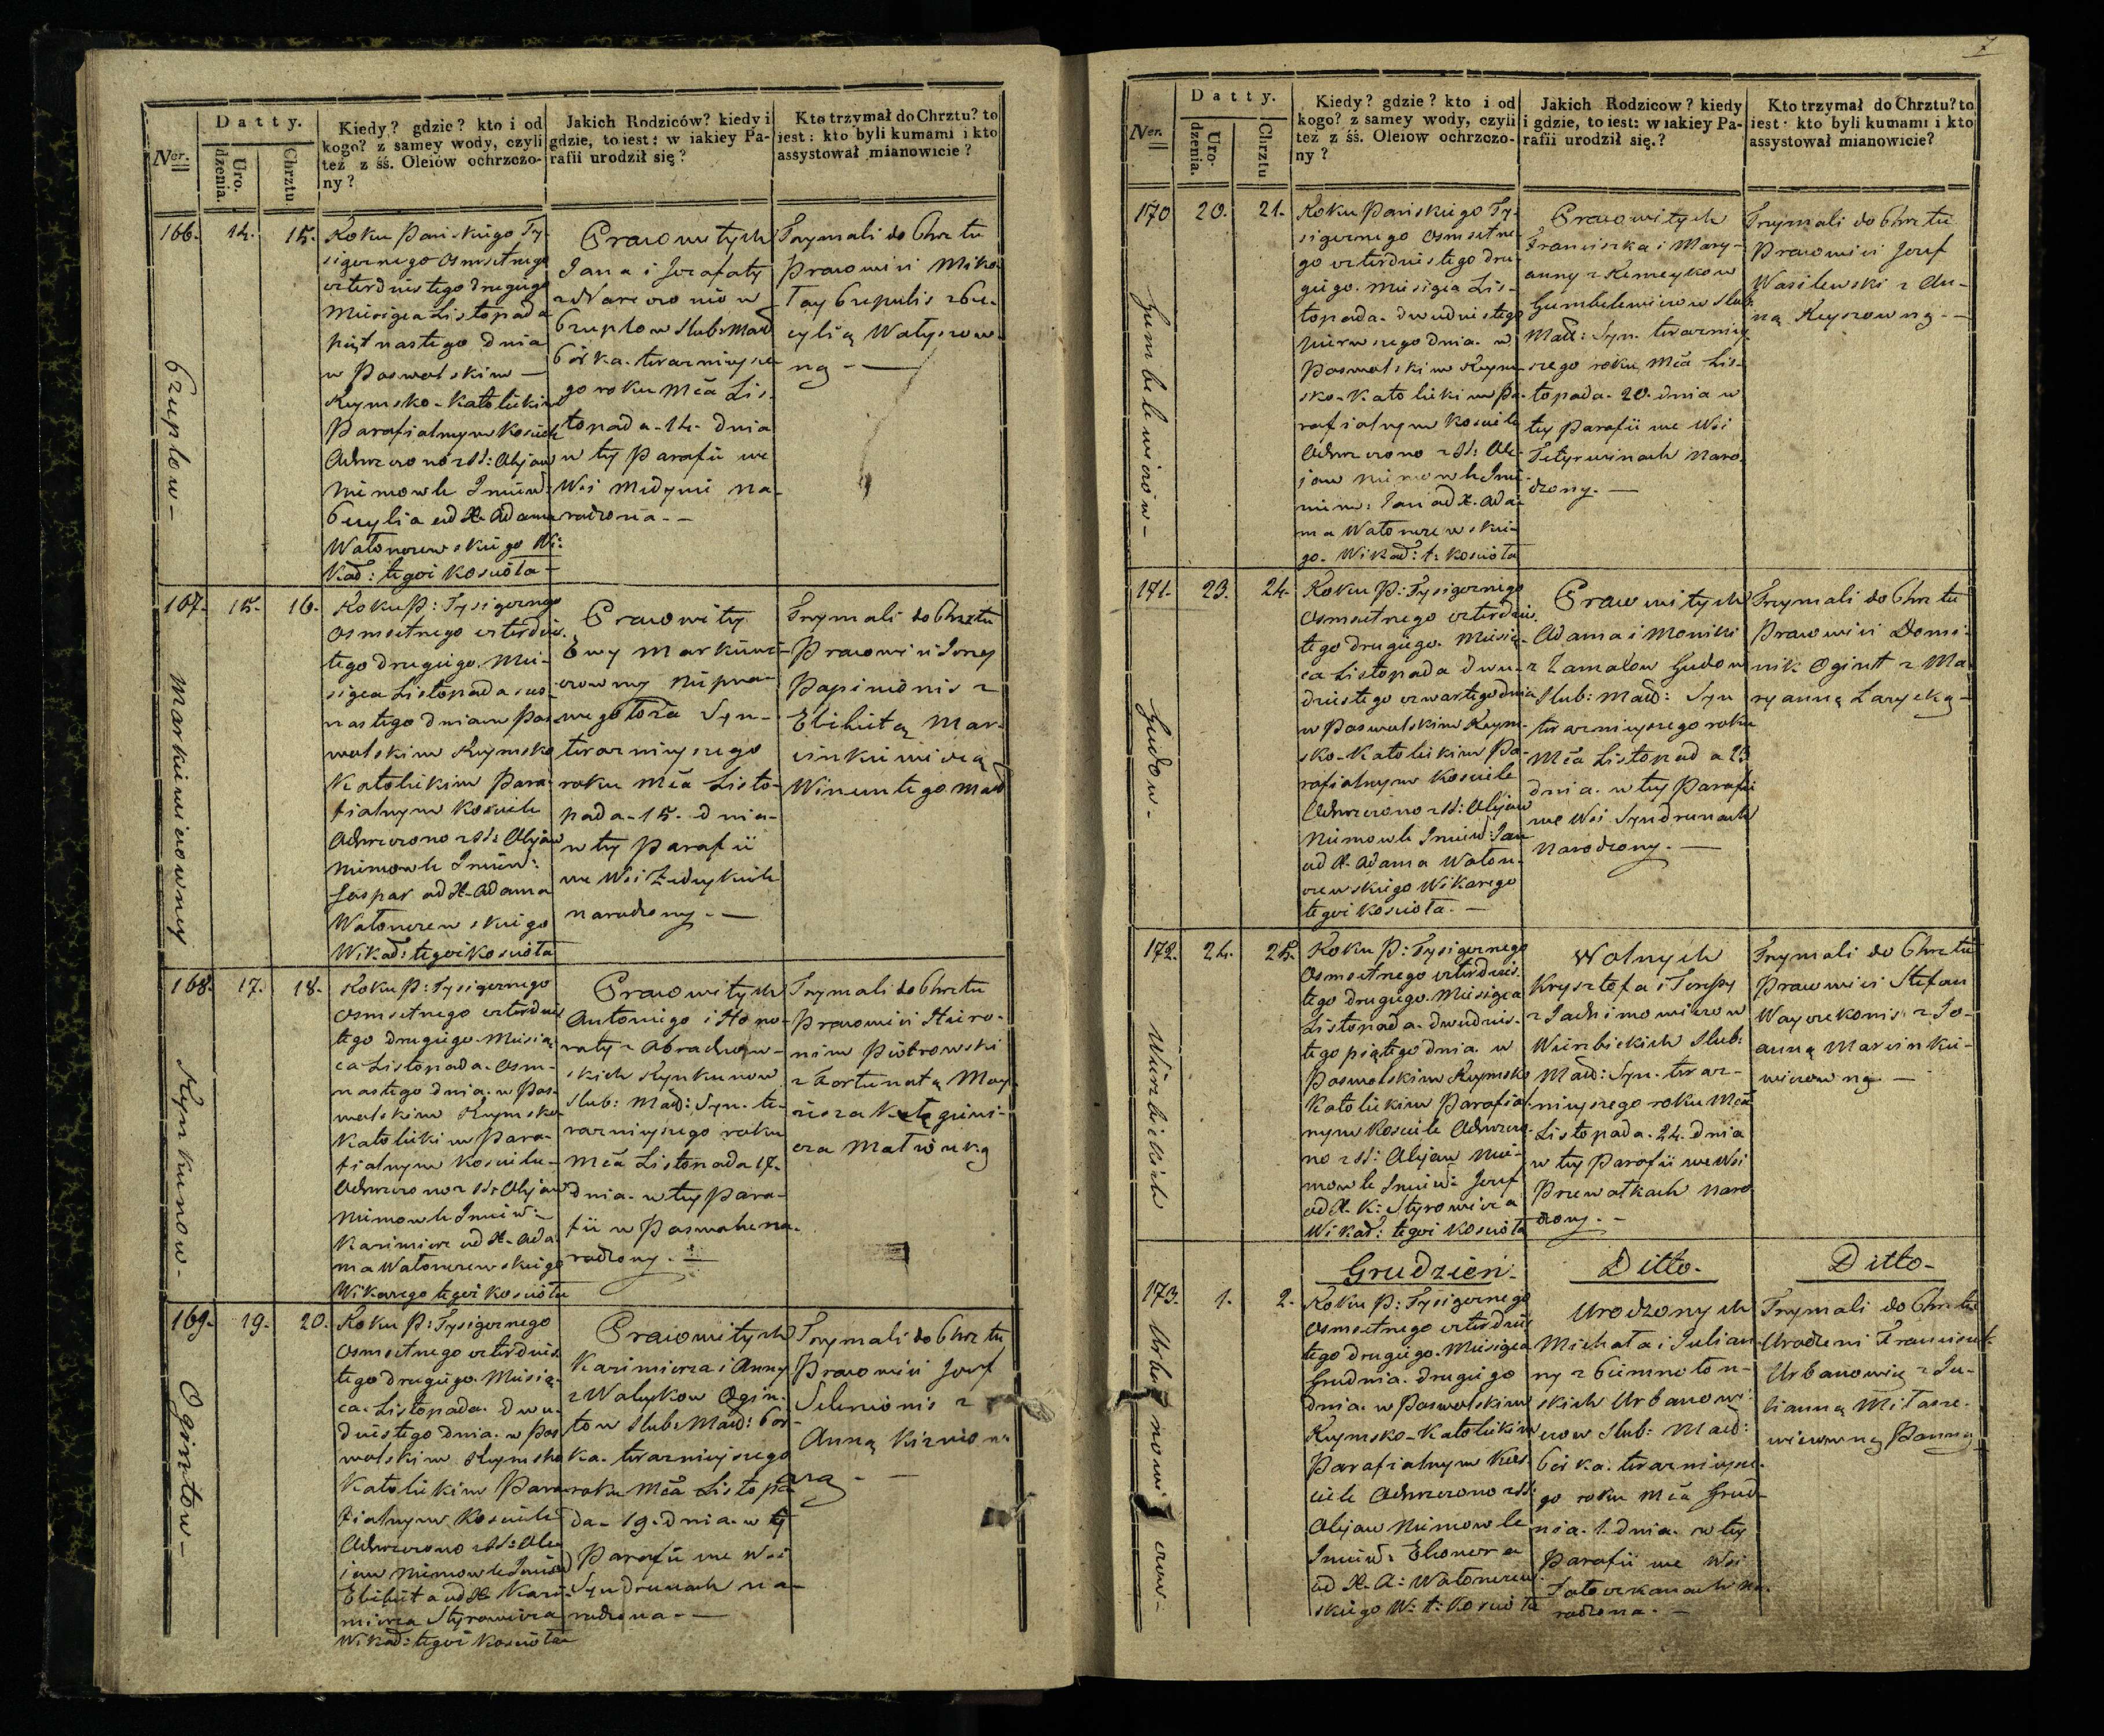 Ner.
Datty.
Uro.
dzenia.
Chrztu
Kiedy? gdzie? kto i od
kogo? z samey wody, czyli
też z śś. Oleiów ochrzczo-
ny?
Jakich Rodziców? kiedy i
gdzie, to iest: w iakiey Pa-
rafii urodził się?
Kto trzymał do Chrztu? to
iest: kto byli kumami i kto
assystował mianowicie?
166.
14.
15.
Czuplow -
Roku Pańskiego Ty-
sięcznego Osmsetnego
czterdziestego drugiego
Miesięca Listopada
piętnastego dnia
w Poswolskim -
Rzymsko-Katolickim
Parafialnym Kościele
Ochrzczono z SS: Olejow
Niemowle Imien:
Cecylia od X. Adama
Wi-
kar: tegoż Kościoła -
Prawowitych
Jana i Jozafaty
Czuplow Slub: Mał:
Córka. terazniejsze-
go roku Mca Lis-
topada - 14 - dnia
w tey Parafii we
Wsi na-
rodzona - -
Trzymali do Chrztu
Prawowici Miko-
łay Czepulis z Ce-
cylią Wałyszow-
ną - -
167.
15.
16.
Markiewiczowney
Roku P: Tysięcznego
Osmsetnego czterdzies-
tego drugiego. Mie-
sięca Listopada szes-
nastego dnia w Pos-
wolskim Rzymsko
Katolickim Para-
fialnym Kościele
Ochrzczono z SS: Olejow
Niemowle Imien:
Gaspar od X. Adama
Wikar: tegoż Kościoła
Prawowitey
Ewy Markiewi-
czowney Niepra-
wego łoża Syn -
terazniejszego
roku Mca Listo-
pada - 15 - dnia -
w tey Parafii
we Wsi
narodzony. -
Trzymali do Chrztu
Prawowici
Papiewonis z
Elżbietą Mar-
cinkiewiczą
Wincentego
168.
17.
18.
Rynkunow -
Roku P: Tysięcznego
Osmsetnego czterdzies
tego drugiego. Miesią-
ca Listopada. Osm-
nastego dnia. w Pos-
wolskim Rzymsko-
Katolickim Para-
fialnym Kościele -
Ochrzczono z SS: Olejow
Niemowle Imien:
Kazimierz od X. Ada-
ma
Wikarego tegoż Kościoła
Prawowitych
Antoniego i Hono-
raty z
skich Rynkunow
Slub: Mał: Syn. te-
razniejszego roku
Mca Listopada 17 -
dnia. w tey Para-
fii w Poswolu na-
rodzony. -
Trzymali do Chrztu
Prawowici Hiero-
nim Piotrowski
z Fortunatą
169.
19.
20.
Ogintow -
Roku P: Tysięcznego
Osmsetnego czterdzies-
tego drugiego. Miesią-
ca Listopada. dwu-
dziestego dnia. w Pos
wolskim Rzymsko
Katolickim Para-
fialnym Kościele
Ochrzczono z SS: Ole-
jow Niemowle Imien
Elżbieta od X. Kazi-
mierza Styrowicza
Wikar: tegoż Kościoła
Prawowitych
Kazimierza i Anny
z Wałyckow Ogin-
tow Slub: Mał: Cór-
ka. terazniejszego
roku Mca Listopa
da - 19. dnia. w tey
Parafii we Wsi
Syndrunach na-
rodzona - -
Trzymali do Chrztu
Prawowici Jozef
z
Anną
7
Ner.
Datty.
Uro-
dzenia.
Chrztu
Kiedy? gdzie? kto i od
kogo? z samey wody, czyli
też z śś. Oleiów ochrzczo-
ny?
Jakich Rodziców? kiedy
i gdzie, to iest: w iakiey Pa-
rafii urodził się.?
Kto trzymał do Chrztu? to
iest: kto byli kumami i kto
assystował mianowicie?
170
20.
21.
Gumbelewiczow -
Roku Pańskiego Ty-
sięcznego Osmsetne-
go czterdziestego dru-
giego. Miesięca Lis-
topada. dwudziestego
pierwszego dnia. w
Poswolskim Rzym-
sko-Katolickim Pa-
rafialnym Kościele
Ochrzczono z SS: Ole-
jow Niemowle Imie-
niem: Jan od X. Ada-
ma
go. Wikar: t: Kościoła
Prawowitych
Franciszka i Mary-
anny z
Gumbelewiczow Slub:
Mał: Syn. terazniej-
szego roku Mca Lis-
topada. 20. dnia w
tey Parafii we Wsi
Tetyrwinach naro-
dzony. -
Trzymali do Chrztu
Prawowici Jozef
Wasilewski z An-
ną
171.
23.
24.
Gudow -
Roku P: Tysięcznego
Osmsetnego czterdzies-
tego drugiego. Miesią-
ca Listopada dwu-
dziestego czwartego dnia
w Poswolskim Rzym-
sko-Katolickim Pa-
rafialnym Kościele
Ochrzczono z SS: Olejow
Niemowle Imien: Jan
od X. Adama
Wikarego
tegoż Kościoła. -
Prawowitych
Adama i Moniki
z Gudow
Slub: Mał: Syn
terazniejszego roku
Mca Listopada 23
dnia. w tey Parafii
we Wsi Syndrunach
Narodzony. -
Trzymali do Chrztu
Prawowici Domi-
nik Ogint z Ma-
ryanną Zarycką -
172.
24.
25.
Wierzbickich
Roku P: Tysięcznego
Osmsetnego czterdzies-
tego drugiego. Miesięca
Listopada. dwudzies-
tego piątego dnia. w
Poswolskim Rzymsko
Katolickim Parafial-
nym Kościele Ochrzczo-
no z SS: Olejow Nie-
mowle Imien: Jozef
od X. K: Styrowicza
Wikar: tegoż Kościoła
Wolnych
Krysztofa i Teressy
z Jachimowiczow
Wierzbickich Slub:
Mał: Syn. teraz-
niejszego roku Mca
Listopada. 24. dnia
w tey Parafii we Wsi
Przewałkach naro-
dzony. -
Trzymali do Chrztu
Prawowici Stefan
z Jo-
anną Marcinkie-
wiczowną -
Grudzień -
Ditto -
Ditto -
173.
1.
2.
Urbanowiczow -
Roku P: Tysięcznego
Osmsetnego czterdzies
tego drugiego. Miesięca
Grudnia. drugiego
dnia. w Poswolskim
Rzymsko-Katolickim
Parafialnym Koś-
ciele Ochrzczono z SS:
Olejow Niemowle
Imien: Eleonora
od X. A:
skiego W: t: Kościoła
Urodzonych
Michała i Julian-
ny z Ciemnołon-
skich Urbanowi-
czow Slub: Mał:
Córka. terazniejsze-
go roku Mca Grud-
nia. 1. dnia. w tey
Parafii we Wsi
na-
rodzona. -
Trzymali do Chrztu
Urodzeni Franciszek
Urbanowicz z Ju-
lianną Mitasze-
wiczowną Panną